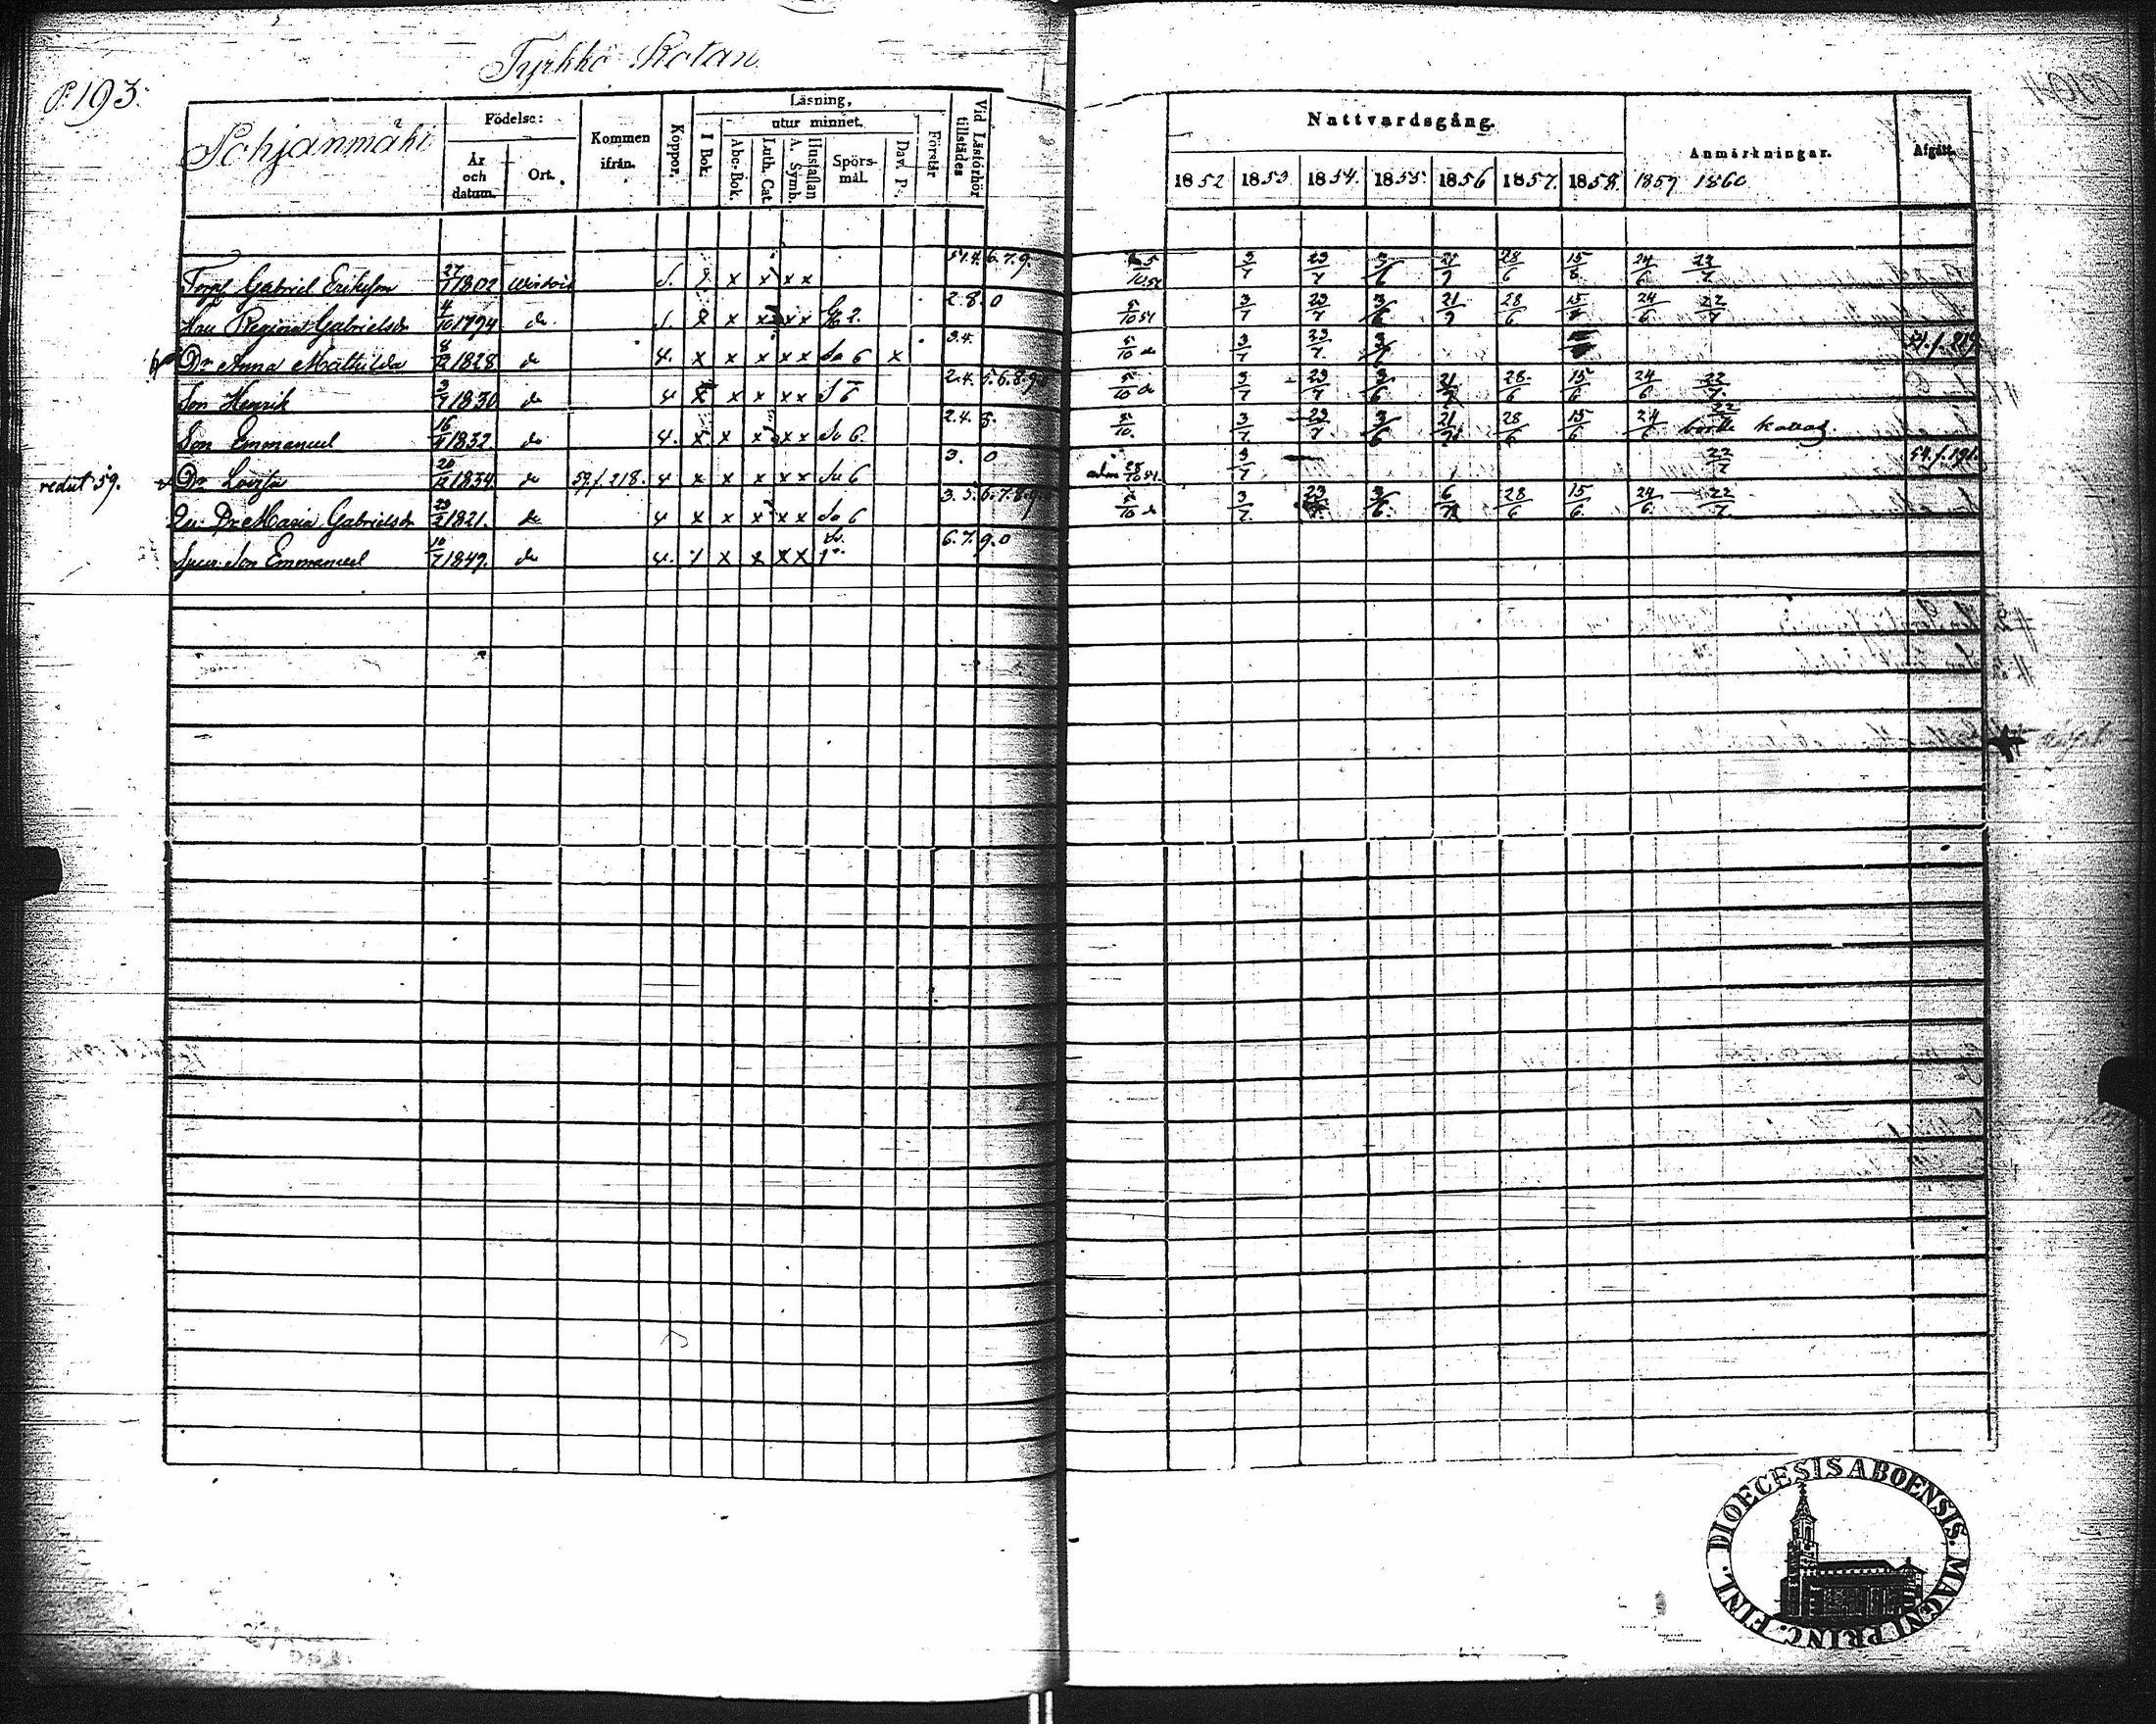 P. 193.
Tyrkkö Rotan
Pohjanmäki
Födelse:
År och datum.
Ort.
Kommen ifrån.
Koppor.
Läsning,
I Bok.
utur minnet.
Abc-Bok.
Luth. Cat.
Hustaflan A. Symb.
Spörsmål.
Dav. P.
Förstår
Vid Läsförhör tillstädes
Nattvardsgång.
1852 1853 1854. 1855. 1856 1857. 1858.
Anmärkningar.
1859 1860
Afgått.
Torp. Gabriel Eriksson 27/7 1802 x x x x 54.4.6.7.9. 5/10 52 3/7 23/7 3/6 21/7 28/6 15/6 24/6 22/7
Hu Regina Gabrielsdr 4/10 1794 do x x x x 2.8.0 5/10 51 3/7 23/7 3/6 21/7 28/6 15/6 24/6 22/7
Dr Anna Mathilda 8/12 1828 do 4. x x x x x Sv 6 x 3.4. 5/10 do 3/7 23/7 54. f. 219
Son Henrik 3/7 1830 do 4 x x x x x S 6 2.4.5.6.8.9. 5/10 do 3/7 23/7 3/6 21/7 28/6 15/6 24/6 22/7
Son Emmanuel 16/4 1832 do 4. x x x x x Sv 6. 2.4.8. 5/10. 3/7 23/7 3/6 21/7 28/6 15/6 24/6 22/7
redut 59. Dr Lovisa 20/12 1834 do 59 f. 218. 4 x x x x x Sv 6 3. 0 3/7 22/7 54. f. 191.
Dr Maria Gabrielsdr 23/2 1821. do 4 x x x x x Sv 6 3.5.6.7.8.9. 5/10 do 3/7 23/7 3/6 6/7 28/6 15/6 24/6 22/7
Son Emmanuel 10/7 1849. do 4. x x x x 6.7.9.0
DIOECESIS ABOENSIS. MAGNI PRINC. FINL.